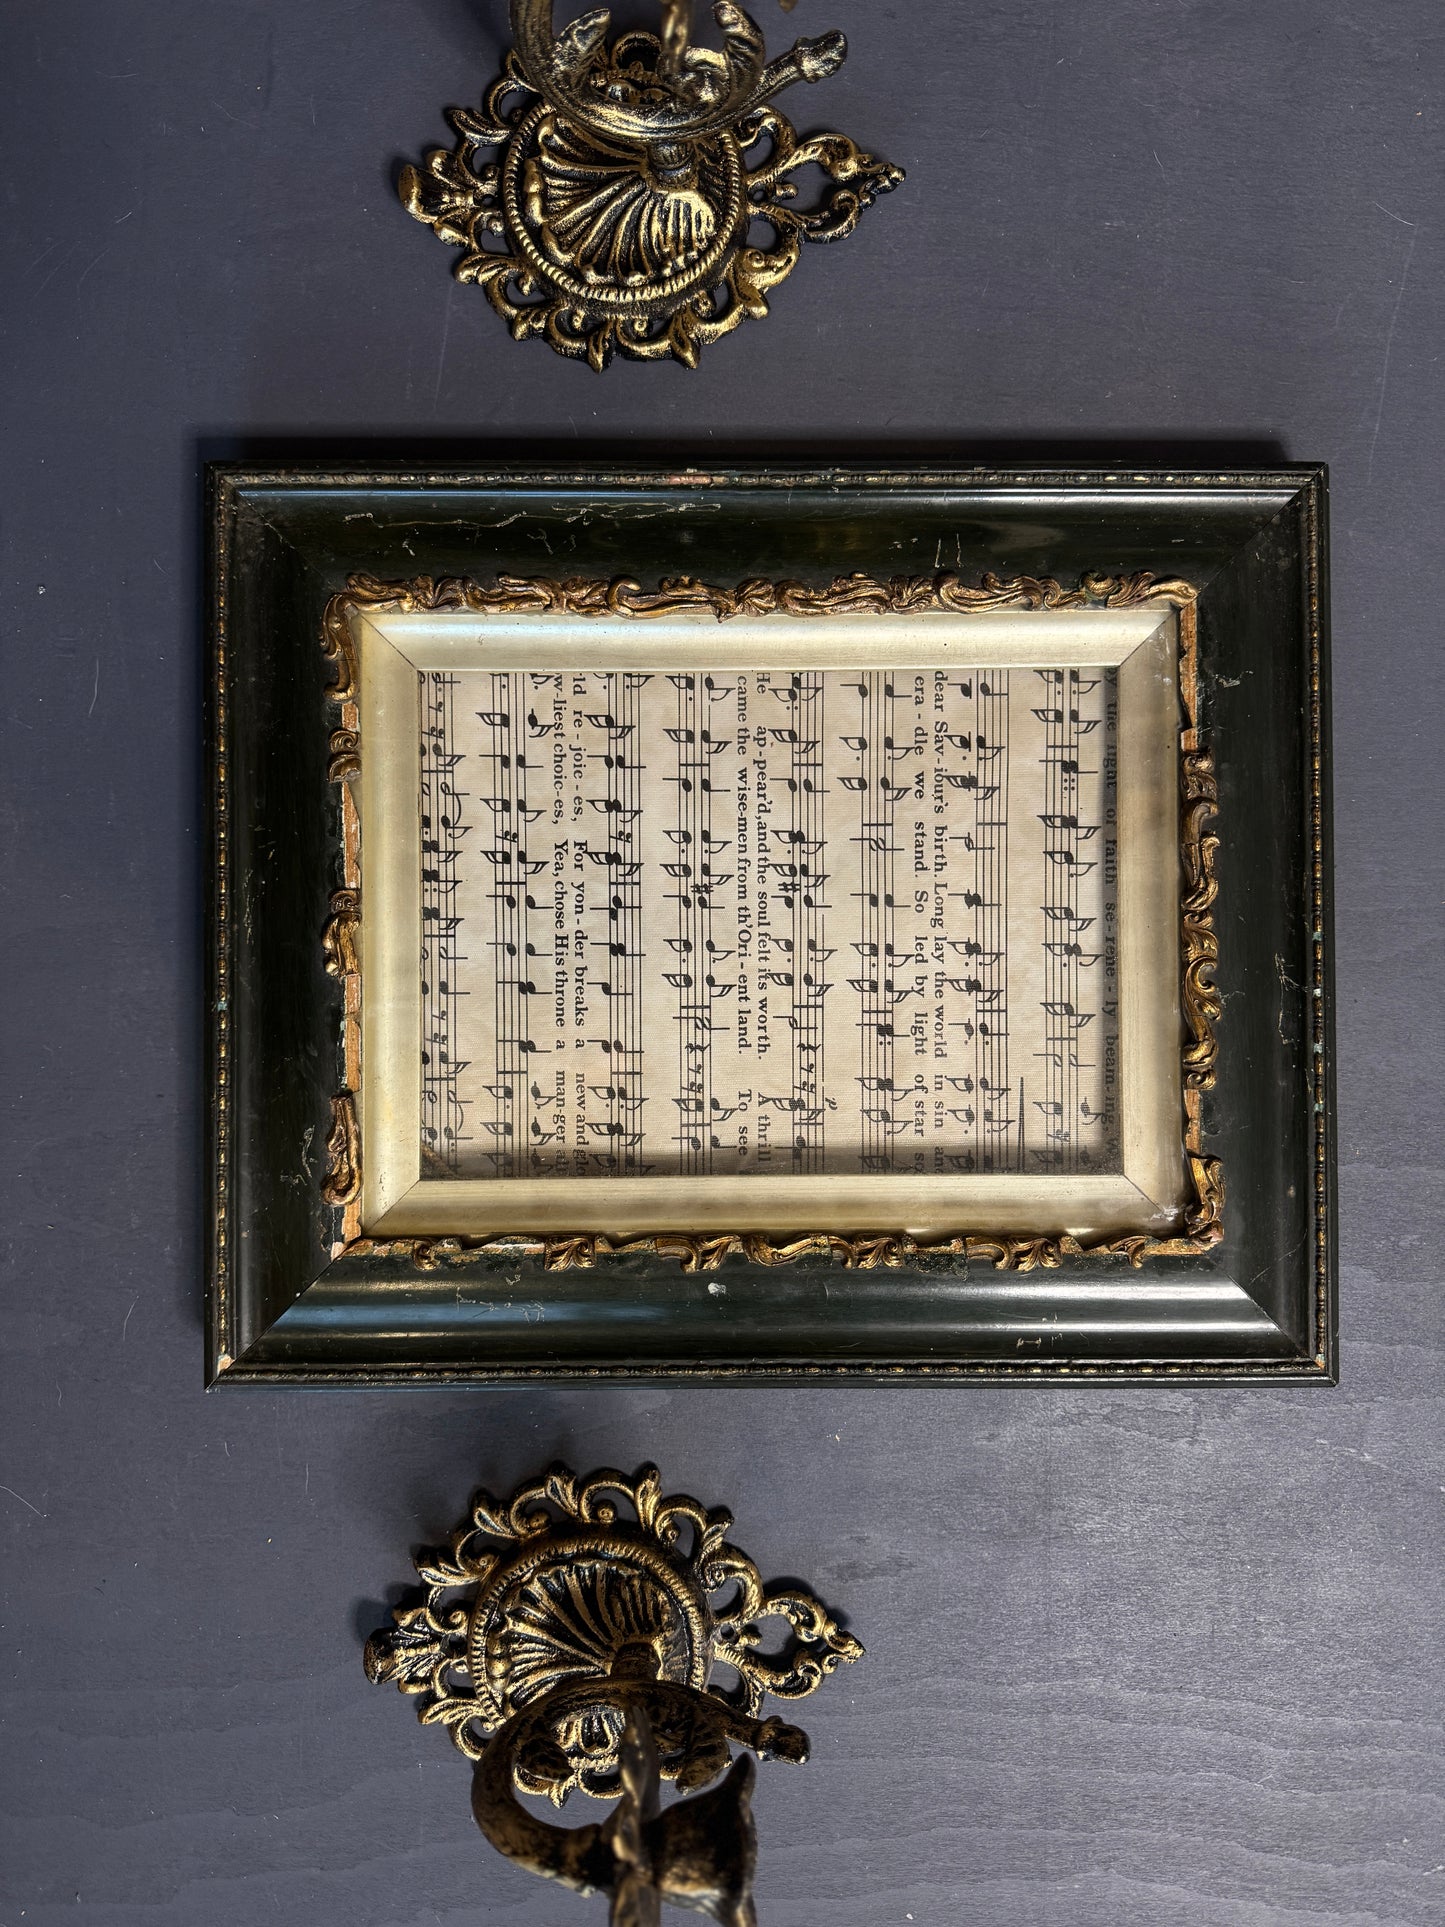 by the light of faith se - rene - ly beam - ing.
dear Sav - iour's birth. Long lay the world in sin and
cra - dle we stand. So led by light of star so
p
He ap - pear'd, and the soul felt its worth. A thrill
came the wise-men from th'Ori - ent land. To see
ld re - joic - es, For yon - der breaks a new and glo
w-liest choic - es, Yea, chose His throne a man - ger